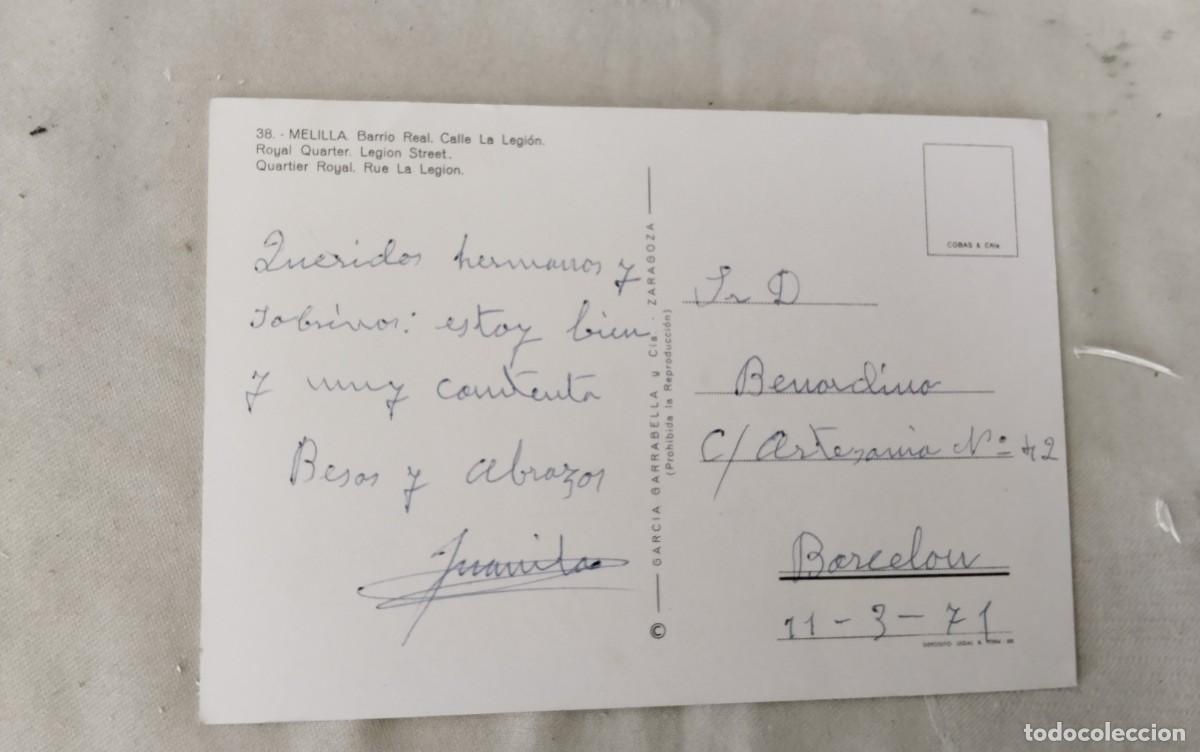 38. - MELILLA. Barrio Real. Calle La Legión.
Royal Quarter. Legion Street.
Quartier Royal. Rue La Legion.
Queridos hermanos y
sobrinos: estoy bien
y muy contenta
Besos y abrazos
Juanita
© GARCIA GARRABELLA y Cía. - ZARAGOZA
(Prohibida la Reproducción)
COBAS & CRIs
Sr D
Benardino
C/ Artesania Nº 42
Barcelon
11-3-71
DEPOSITO LEGAL B.
todocoleccion